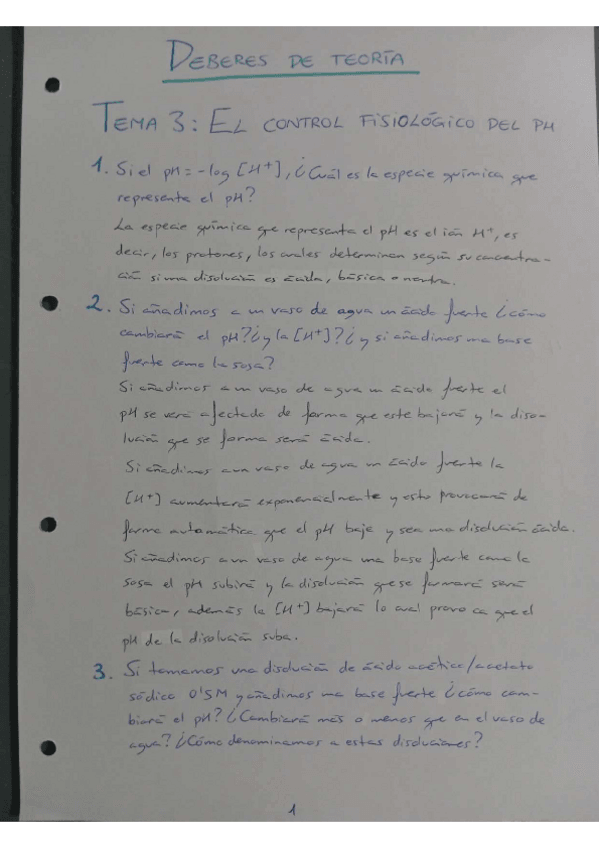 DEBERES DE TEORÍA
TEMA 3: EL CONTROL FISIOLÓGICO DEL PH
1. Si el pH = -log [H+], ¿Cuál es la especie química que
representa el pH?
La especie química que representa el pH es el ión H+, es
decir, los protones, los cuales determinan según su concentra-
ción si una disolución es ácida, básica o neutra.
2. Si añadimos a un vaso de agua un ácido fuerte ¿cómo
cambiará el pH? ¿y la [H+]? ¿y si añadimos una base
fuerte como la sosa?
Si añadimos a un vaso de agua un ácido fuerte el
pH se verá afectado de forma que este bajará y la diso-
lución que se forma será ácida.
Si añadimos a un vaso de agua un ácido fuerte la
[H+] aumentará exponencialmente y esto provocará de
forma automática que el pH baje y sea una disolución ácida.
Si añadimos a un vaso de agua una base fuerte como la
sosa el pH subirá y la disolución que se formará será
básica, además la [H+] bajará lo cual provoca que el
pH de la disolución suba.
3. Si tomamos una disolución de ácido acético/acetato
sódico 0'5M y añadimos una base fuerte ¿cómo cam-
biará el pH? ¿Cambiará más o menos que en el vaso de
agua? ¿Cómo denominamos a estas disoluciones?
1